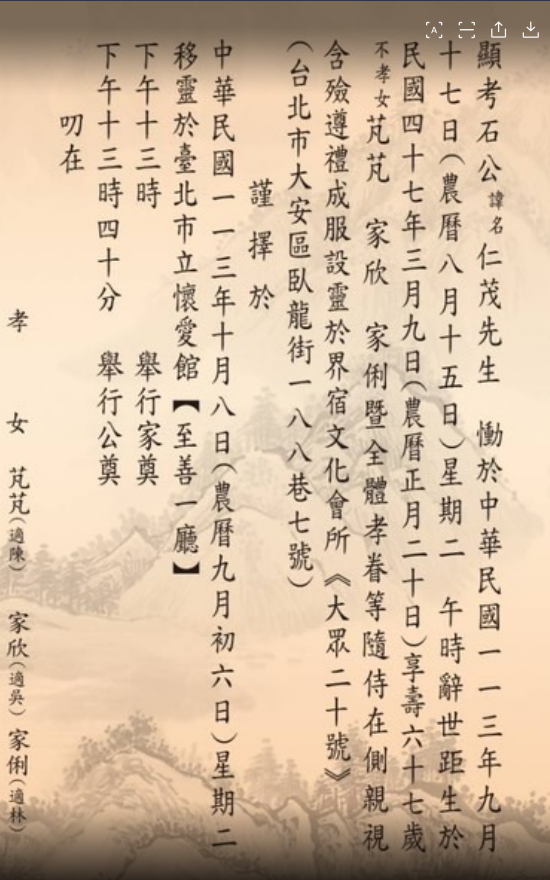 顯考石公諱名仁茂先生 慟於中華民國一一三年九月
十七日(農曆八月十五日)星期二 午時辭世距生於
民國四十七年三月九日(農曆正月二十日)享壽六十七歲
不孝女芃芃 家欣 家俐暨全體孝眷等隨侍在側親視
含殮遵禮成服設靈於界宿文化會所《大眾二十號》
(台北市大安區臥龍街一八八巷七號)
謹擇於
中華民國一一三年十月八日(農曆九月初六日)星期二
移靈於臺北市立懷愛館【至善一廳】
下午十三時 舉行家奠
下午十三時四十分 舉行公奠
叨在
孝 女 芃芃(適陳) 家欣(適吳) 家俐(適林)